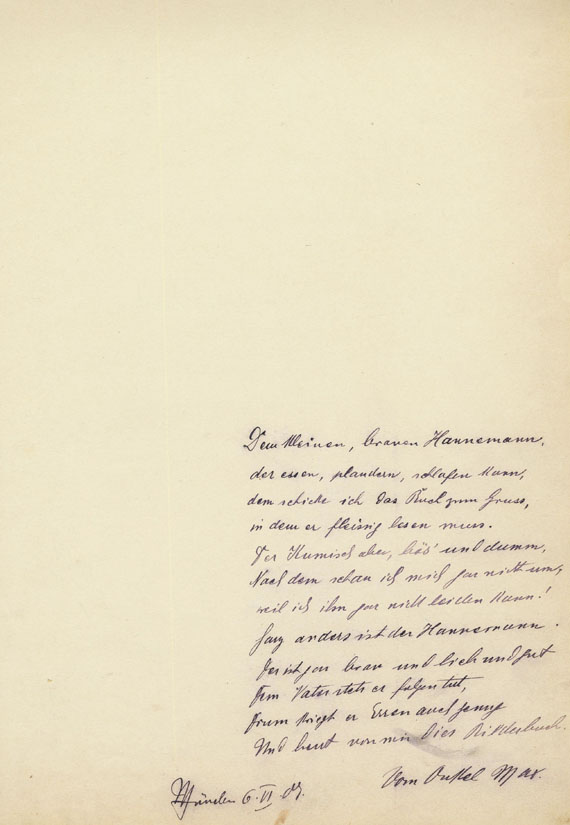 Dem kleinen, braven Hannemann,
der essen, plaudern, schlafen kann,
dem schicke ich das Buch zum Gruss,
in dem er fleissig lesen muss.
Der Kumisch aber, bös' und dumm,
Nach dem schau ich mich gar nicht um,
weil ich ihn gar nicht leiden kann!
Ganz anders ist der Hannemann.
Der ist gar brav und lieb und gut
Dem Vater stets er folgen tut,
Drum kriegt er Essen auch genug
Und heut von mir dies Bilderbuch.
Vom Onkel Max.
München 6. VI. 09.